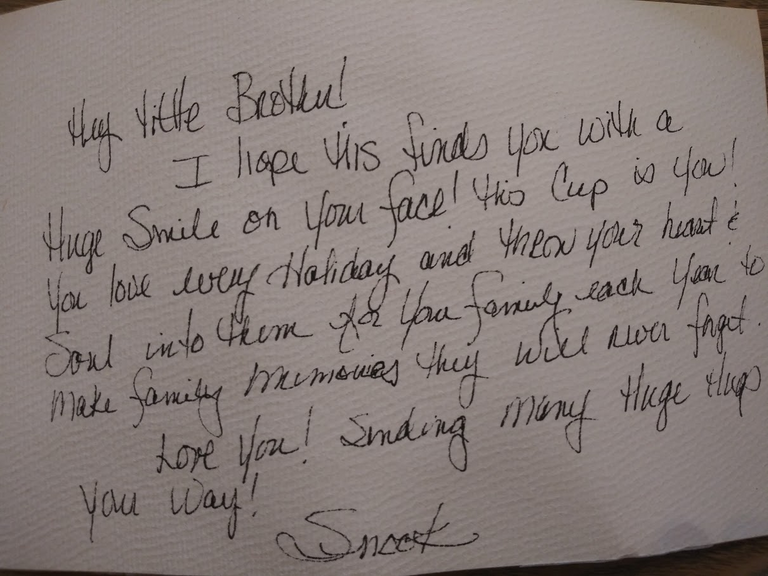 Hey little Brother!
I hope this finds you with a
Huge Smile on your face! This Cup is you!
You love every Holiday and throw your heart &
Soul into them for your family each year to
make family memories they will never forget.
Love You! Sending many Huge Hugs
your way!
Snook